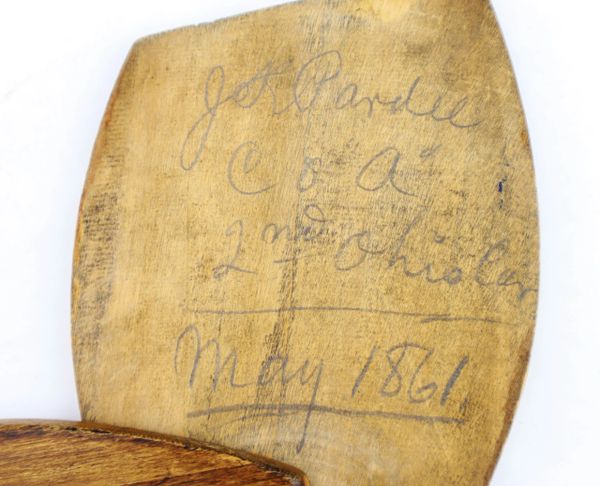 Jos Pardee
Co "A"
2nd Ohio Cav
May 1861